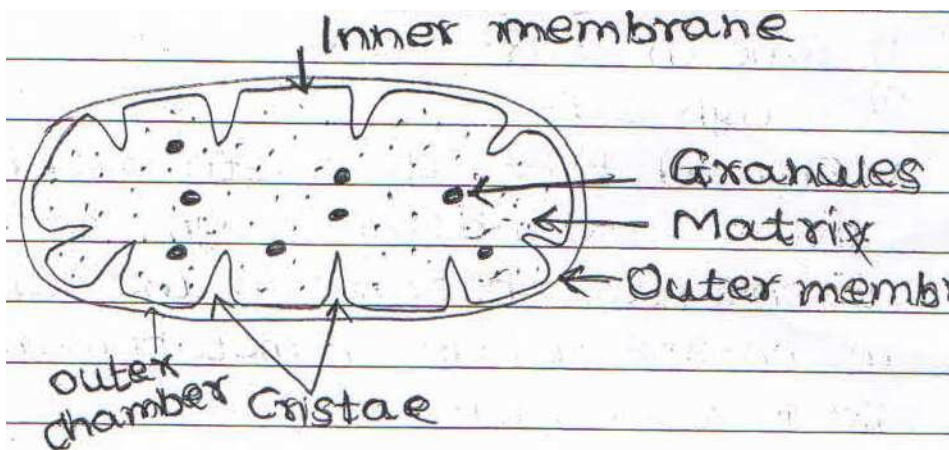 Inner membrane
Granules
Matrix
Outer memb
outer
chamber
Cristae